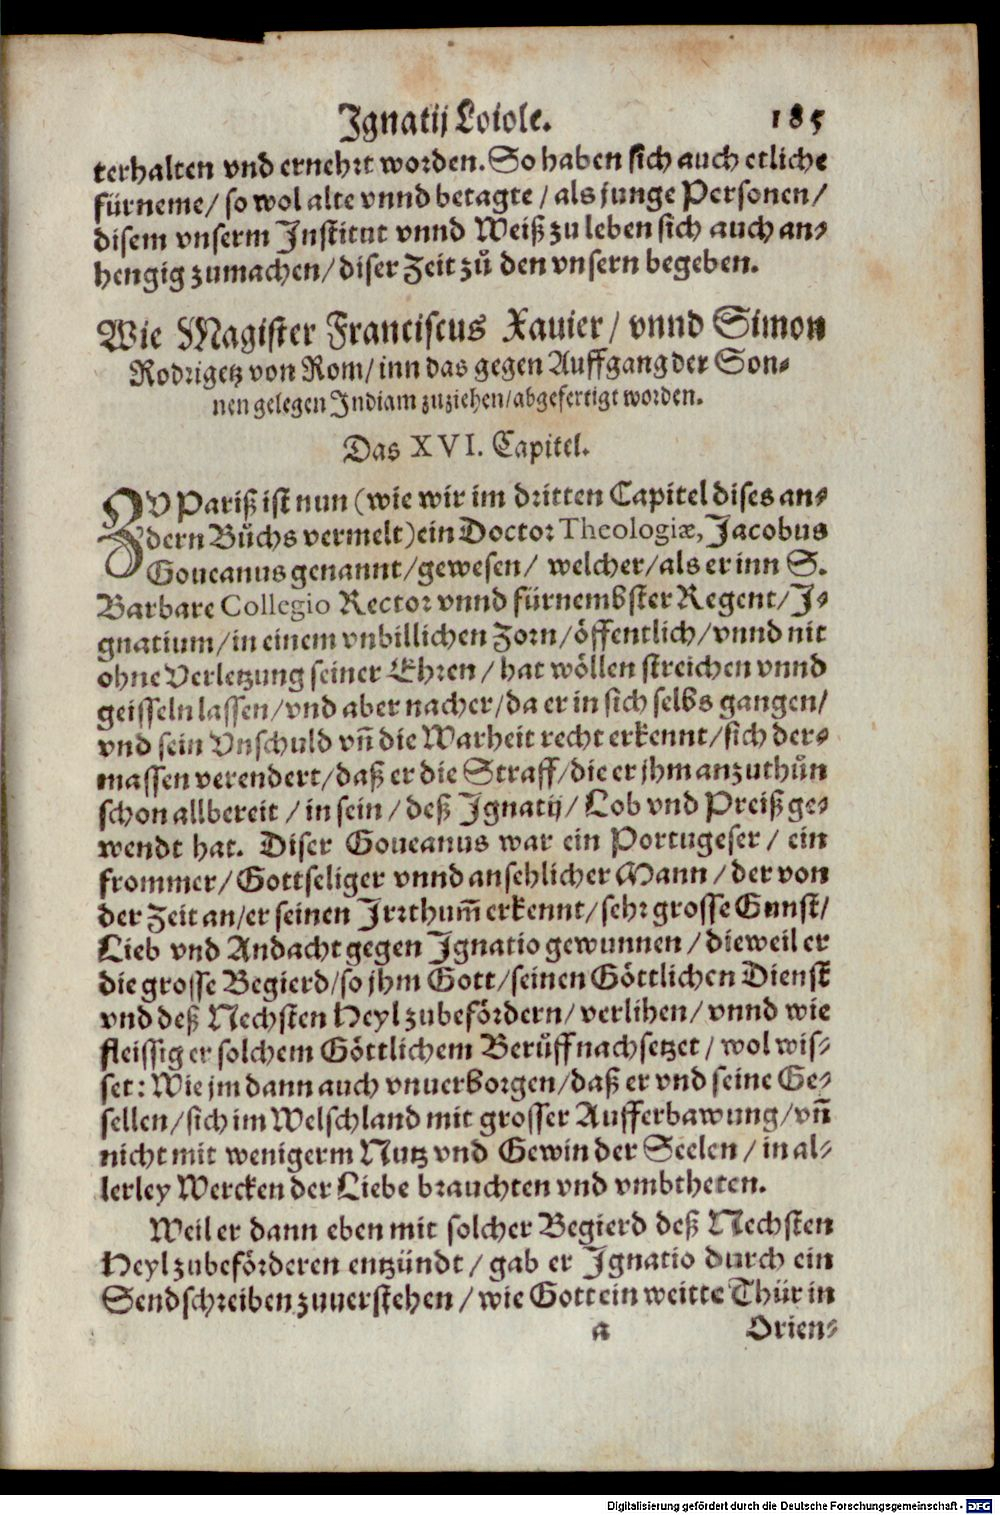 Ignatij Loiole. 185
terhalten vnd ernehrt worden. So haben sich auch etliche
fürneme/ so wol alte vnnd betagte / als junge Personen/
disem vnserm Institut vnnd Weiß zu leben sich auch an-
hengig zumachen/ diser Zeit zů den vnsern begeben.
Wie Magister Franciscus Xauier/ vnnd Simon
Rodrigetz von Rom/ inn das gegen Auffgang der Son-
nen gelegen Indiam zuziehen/ abgefertigt worden.
Das XVI. Capitel.
ZV Pariß ist nun (wie wir im dritten Capitel dises an-
dern Bůchs vermelt) ein Doctor Theologiæ, Jacobus
Goueanus genannt/ gewesen/ welcher/ als er inn S.
Barbare Collegio Rector vnnd fürnembster Regent/ I-
gnatium/ in einem vnbillichen Zorn/ öffentlich/ vnnd nit
ohne Verletzung seiner Ehren/ hat wöllen streichen vnnd
geisseln lassen/ vnd aber nacher/ da er in sich selbs gangen/
vnd sein Vnschuld vñ die Warheit recht erkennt/ sich der-
massen verendert/ daß er die Straff/ die er jhm anzuthůn
schon allbereit / in sein/ deß Ignatij/ Lob vnd Preiß ge-
wendt hat. Diser Goueanus war ein Portugeser/ ein
frommer/ Gottseliger vnnd ansehlicher Mann / der von
der Zeit an/ er seinen Irrthum̃ erkennt/ sehr grosse Gunst/
Lieb vnd Andacht gegen Ignatio gewunnen / dieweil er
die grosse Begierd/ so jhm Gott/ seinen Göttlichen Dienst
vnd deß Nechsten Heyl zubefördern/ verlihen/ vnnd wie
fleissig er solchem Göttlichem Berůff nachsetzet / wol wis-
set: Wie jm dann auch vnuerborgen/ daß er vnd seine Ge-
sellen/ sich im Welschland mit grosser Aufferbawung/ vñ
nicht mit wenigerm Nutz vnd Gewin der Seelen / in al-
lerley Wercken der Liebe brauchten vnd vmbtheten.
Weil er dann eben mit solcher Begierd deß Nechsten
Heyl zubeförderen entzündt / gab er Ignatio durch ein
Sendschreiben zuuerstehen / wie Gott ein weitte Thür in
a Orien-
Digitalisierung gefördert durch die Deutsche Forschungsgemeinschaft - DFG